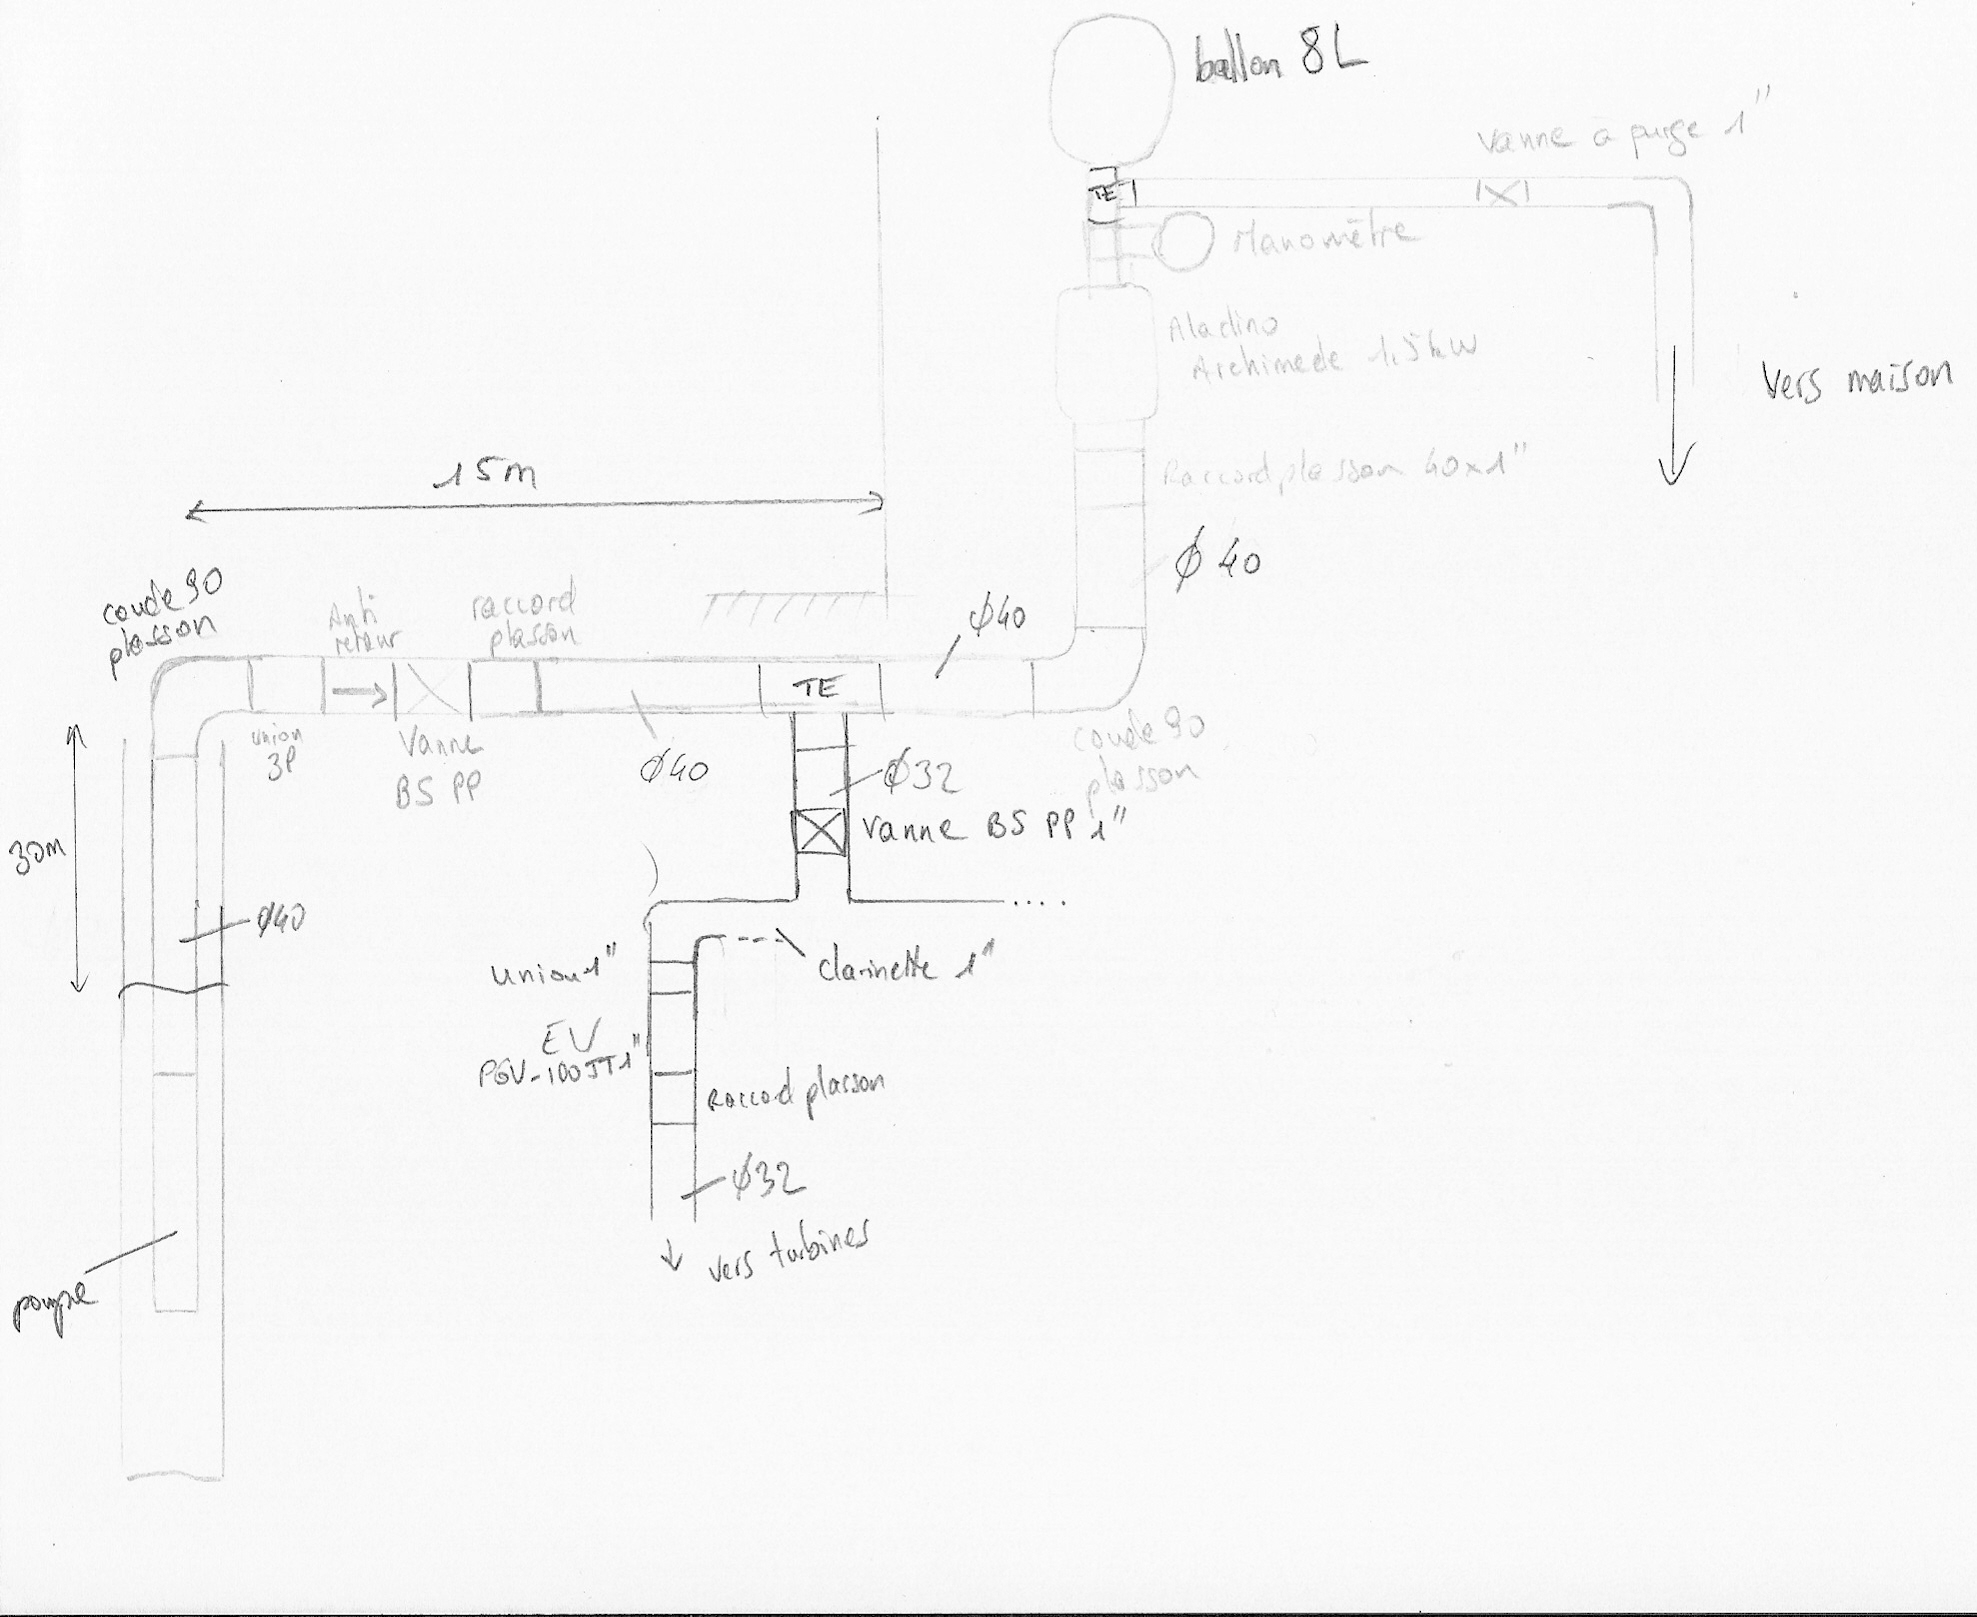 ballon 8L
Vanne à purge 1"
TE
Manomètre
Aladino
Archimede 1.5kW
vers maison
Raccord plasson 40x1"
15m
ϕ 40
coude 90
plasson
Anti
retour
raccord
plasson
ϕ40
TE
union
3P
Vanne
BS PP
ϕ40
ϕ32
coude 90
plasson
Vanne BS PP 1"
30m
ϕ40
union 1"
clarinette 1"
EV
PGV-100JT1"
Raccord plasson
ϕ32
vers turbines
pompe